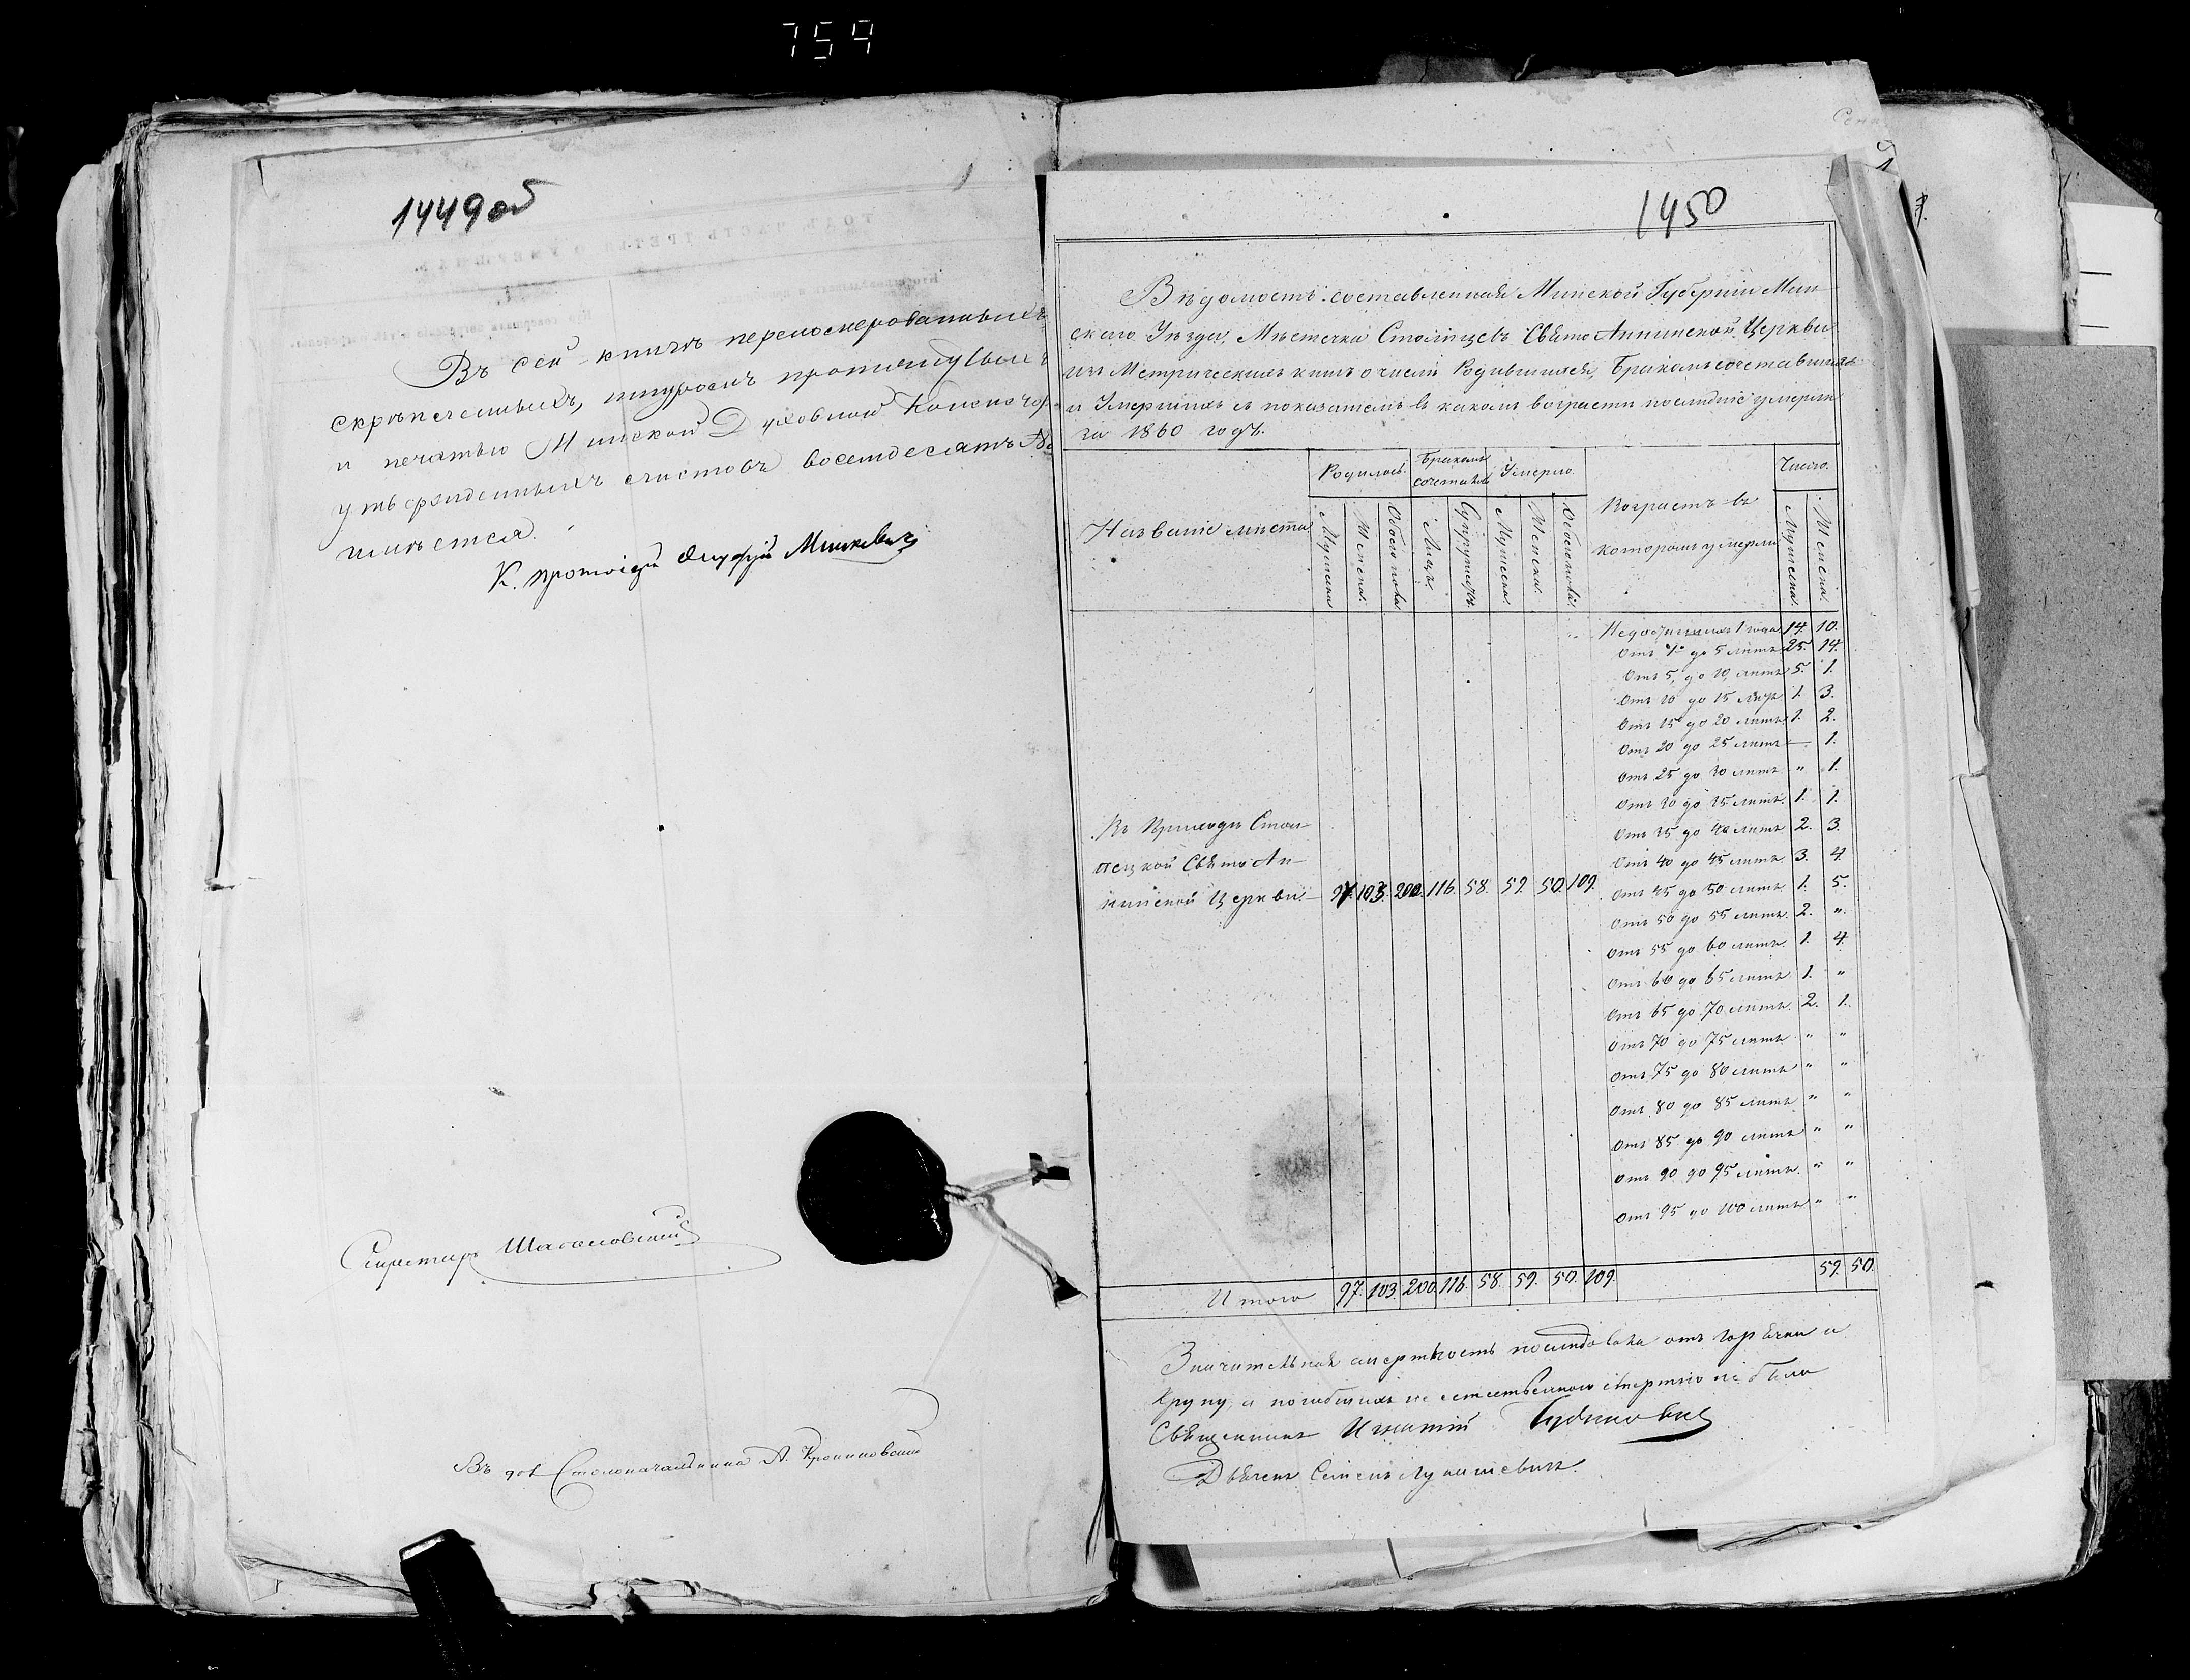 759
1449 об
Въ сей книгѣ перенумерованныхъ
скрѣпленныхъ, шнуромъ протянутыхъ
и печатью Минской Духовной Консисто
утвержденныхъ листовъ восемдесятъ
имѣется.
К. протоіерей Онуфрій
Секретарь
Въ дол. Столоначальника А.
1450
Вѣдомость составленная Минской Губерніи Мин
скаго Уѣзда, Мѣстечка Столпцевъ Свято Аннинской Церкви
изъ Метрическихъ книгъ о числѣ Родившихся, Бракомъ сочетавшихся
и Умершихъ съ показаніемъ въ какомъ возрастѣ послѣдніе умерли
за 1860 годъ.
Названіе мѣста
Родилось.
Бракомъ сочетались
Умерло.
Возрастъ въ которомъ умерли
Число.
Мужеска Женска. Обоего пола Лицъ. Супруговъ Мужеска. Женска. Обоего пола. Мужеска. Женска.
Недостигшихъ 1 года 14. 10.
Отъ 1 до 5 лѣтъ 25. 14.
Отъ 5, до 10, лѣтъ 5. 1.
Отъ 10 до 15 лѣтъ 1. 3.
Отъ 15 до 20 лѣтъ 1. 2.
Отъ 20 до 25 лѣтъ — 1.
Отъ 25 до 30 лѣтъ „ 1.
Отъ 30 до 35 лѣтъ. 1. 1.
Отъ 35 до 40 лѣтъ 2. 3.
Отъ 40 до 45 лѣтъ 3. 4.
Отъ 45 до 50 лѣтъ 1. 5.
Отъ 50 до 55 лѣтъ 2. „
Отъ 55 до 60 лѣтъ. 1. 4.
Отъ 60 до 65 лѣтъ 1. „
Отъ 65 до 70 лѣтъ. 2. 1.
Отъ 70 до 75 лѣтъ „ „
Отъ 75 до 80 лѣтъ „ „
Отъ 80 до 85 лѣтъ „ „
Отъ 85 до 90 лѣтъ „ „
Отъ 90 до 95 лѣтъ „ „
Отъ 95 до 100 лѣтъ „ „
Въ Приходѣ Стол-
пецкой Свято Ан-
нинской Церкви — 97. 103. 200. 116. 58. 59. 50. 109.
Итого 97. 103. 200. 116. 58. 59. 50. 109. 59. 50.
Значительная смертность послѣдовала отъ горячки и
крупу, а погибшихъ не естественною смертію не было
Священникъ Игнатій
Дьячекъ Семенъ